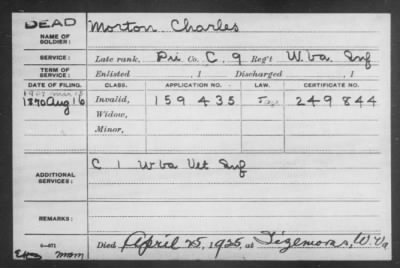 DEAD
NAME OF SOLDIER: Morton Charles
SERVICE: Late rank, Pri Co. C, 9 Reg't W.Va. Inf
TERM OF SERVICE: Enlisted , 1 Discharged , 1
DATE OF FILING. CLASS. APPLICATION NO. LAW. CERTIFICATE NO.
1870 Aug 16 Invalid, 159 435 249 844
Widow,
Minor,
ADDITIONAL SERVICES: C 1 W Va Vet Inf
REMARKS:
Died April 25, 1925, at W.Va